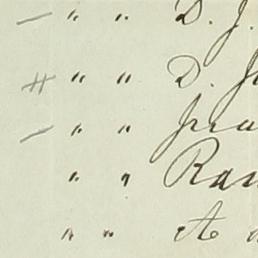 — " " D. J.
# " " D. J
— " " Fra
" " Ran
" " A